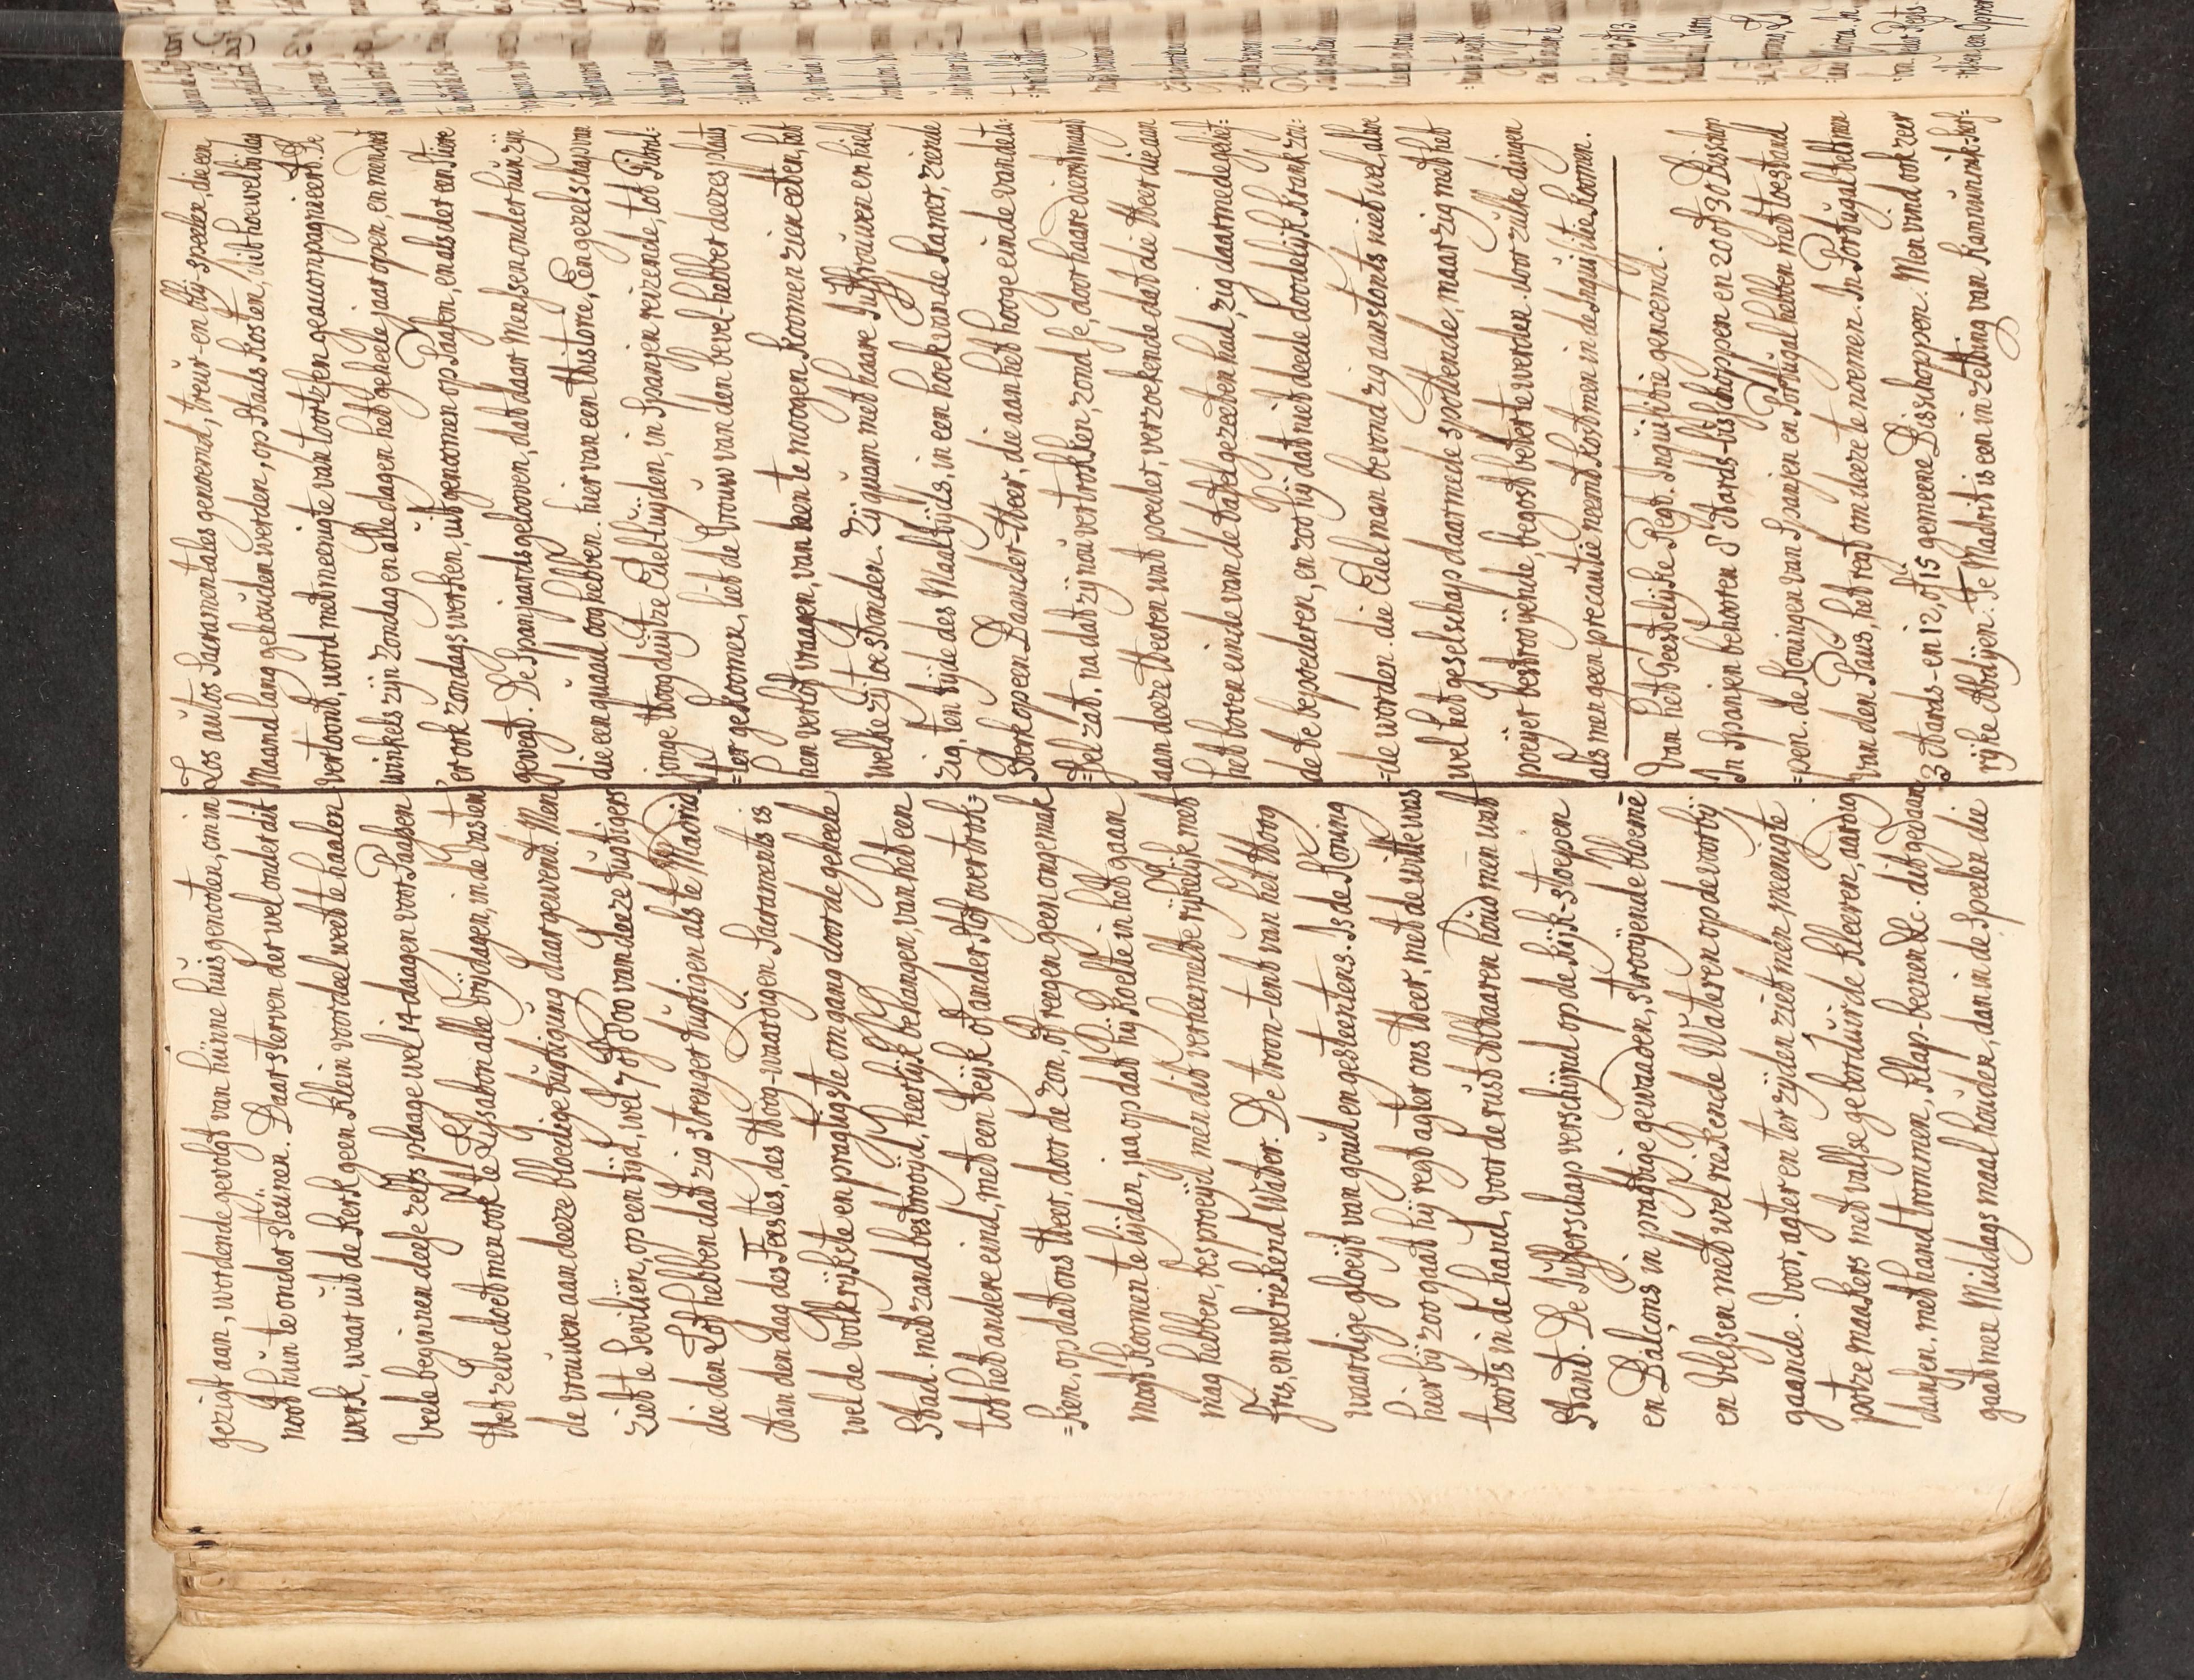 gezigt aan, wordende gevolgt van hunne huisgenooten, om in
noot hun te ondersteunen. Daar sterven der wel onder dit
werk, waar uit de kerk geen klein voordeel weet te haalen
Veele beginnen deese zelfs plaage wel 14 daagen voor Paassen
Het zelve doet men ook te Lissabon alle vrijdagen, in de vasten
de vrouwen aan deeze bloedige tugtiging daar gewend. Men
ziet te Seviliën, op een tijd, wel 7 of 800 van deeze tugtigers
die den Lof hebben dat zig strenger tugtigen als te Madrid.
Aan den dag des Feestes, des Hoog-waardigen Sacraments is
wel de volkrijkste en pragtigste omgang door de geheele
Stad. met zand bestrooijd, heerlijk behangen, van het een
tot het andere eind, met een kleijk of ander stof overtrok=
=ken, op dat ons Heer, door de zon, of reegen geen ongemak
magt koomen te lijden, jaa op dat hij koelte in het gaan
mag hebben, besproeijd men dit verheemelte rijkelijk met
fris, en welriekend Water. De troon-tent van het Hoog
waardige gloeijt van goud en gesteentens. Is de Koning
hier bij zoo gaat hij regt agter ons Heer, met de witte was
toorts in de hand, voor de rust Altaaren houd men wat
Stand. De Jufferschap verschijnd op de kijk-stoepen
en Balcons in pragtige gewaaden, strooijende bloeme
en vlessen met welriekende Wateren op de voorbij
gaande. Voor, agter en ter zijden ziet men meenigte
potzemaakers met valsse geborduurde kleeren, aardig
danssen. met handtrommen, klap-beenen &c. dit gedaan
gaat men Middags maal houden, dan in de Speelen die
Los autos Sacramentales genoemd, treur- en blij-speelen, die een
Maand lang gehouden werden, op stads kosten, dit hoewel bij dag
vertoont, word met meenigte van toortzen geaccompagneert. De
winkels zijn Zondag en alle dagen het geheele jaar open, en men ziet
er ook zondags werken, uitgenoomen op Paassen, en als der een Stier
gevegt. De Spanjaards gelooven, dat daar Menssen onder hun zijn
die een quaad oog hebben. hier van een Historie, Een gezelschap van
jonge Hoogduijtze Edelluijden, in Spanjen reizende, tot Gibral=
=ter gekoomen, liet de Vrouw van den bevel-hebber deezes plaats
hen verlof vraagen, van hen te moogen koomen zien eeten, het
welke zij toestonden. Zij quam met haare Juffrouwen en hield
zig, ten tijde des Maaltijds, in een hoek van de Kamer, ziende
Sterk op een Baander-Heer, die aan het hooge einde van de ta=
=fel zat. na dat zij nu vertrokken, zond se, door haare dienstmaagt
aan deeze Heeren wat poeder, verzoekende dat die Heer die aan
het boven einde van de tafel gezeeten had, zig daarmede geliet=
de te bepoederen, en zoo hij dat niet deede doodelijk krank zou=
=de worden. die Edelman bevond zig aanstonts niet wel, alhoe
wel het geselschap daarmede spottende, maar zig met het
poeijer bestrooijende, begost beter te werden. voor zulke dingen
als men geen precautie neemt kost men in de Inquisitie koomen.
Van het Geestelijke Regt. Inquisitie genoemd.
In Spanjen behooren 8 Aards-bisschoppen en 20 of 30 Bisschop
=pen. de Koningen van Spanjen en Portugal hebben met toestand
van den Paus, het regt om deeze te noemen. In Portugal telt men
3 Aards- en 12, of 15 gemeene Bisschoppen. Men vind ook zeer
rijke Abdijen. Te Madrit is een inzetting van Kannunnikschop=